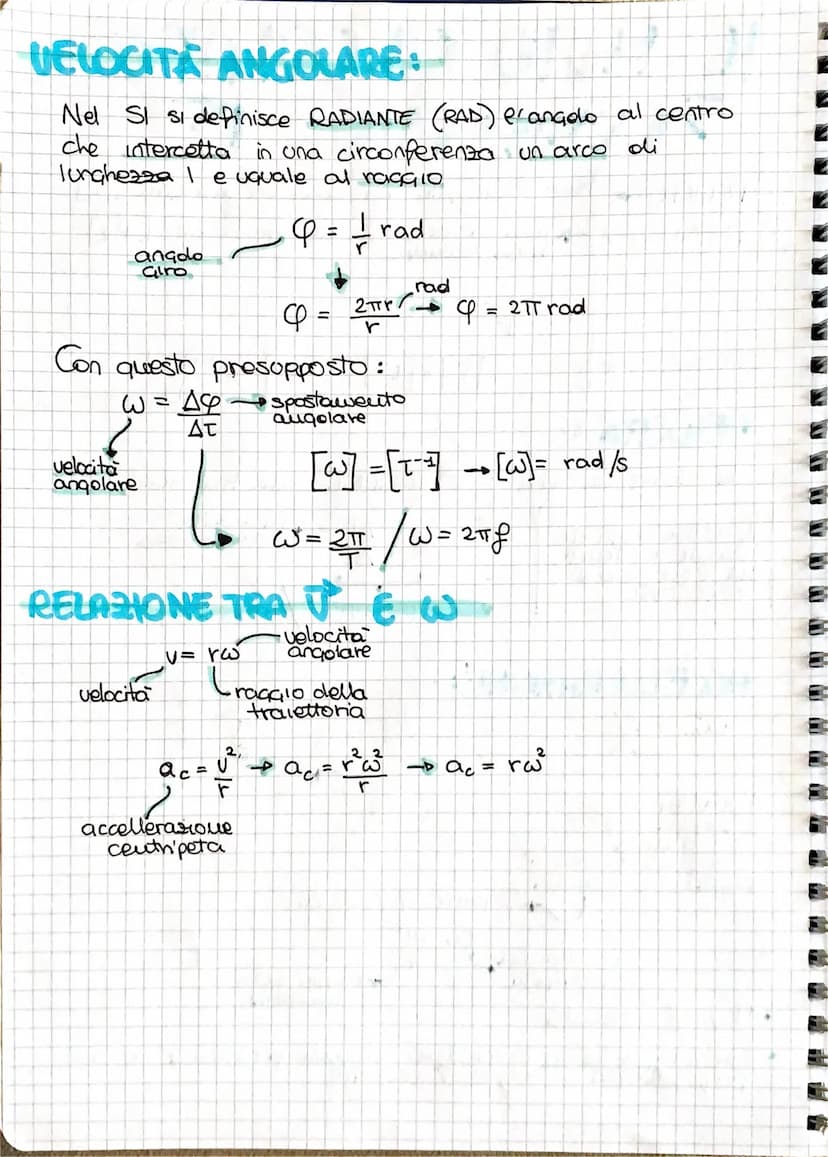 VELOCITÀ ANGOLARE:
Nel SI si definisce RADIANTE (RAD) l'angolo al centro
che intercetta in una circonferenza un arco di
lunghezza l e uguale al raggio
φ = l/r rad
angolo
giro
φ = 2πr/r rad → φ = 2π rad
Con questo presopposto:
ω = Δφ/Δt → spostamento
angolare
velocità
angolare
[ω] = [t⁻¹] → [ω] = rad/s
ω = 2π/T / ω = 2πf
RELAZIONE TRA v⃗ E ω
v = rω
velocità
angolare
velocità
raggio della
traiettoria
ac = v²/r → ac = r²ω²/r → ac = rω²
accellerazione
centripeta